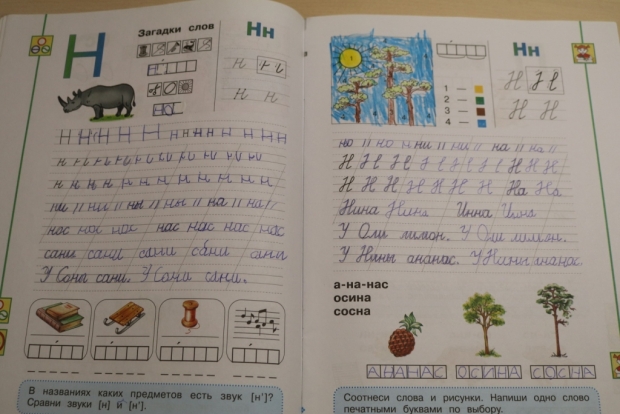 Н
Загадки слов
Нн
нос
Н Н Н Н Н Н н н н н н н н
н н н н н н н н н н н
н н н н н н н н н н н
ни ни ны ны на на
нос нос нос нас нас нас нас
сани сани сани сани сани
У Сони сани. У Сони сани.
В названиях каких предметов есть звук [н']?
Сравни звуки [н] и [н'].
Нн
1 —
2 —
3 —
4 —
но но ни ни на на
Н Н Н Н Н Н Н Н Н Н
Н Н Н Н Н Н Н На На
Нина Нина Инна Инна
У Оли лимон. У Оли лимон.
У Нины ананас. У Нины ананас.
а-на-нас
осина
сосна
АНАНАС ОСИНА СОСНА
Соотнеси слова и рисунки. Напиши одно слово
печатными буквами по выбору.